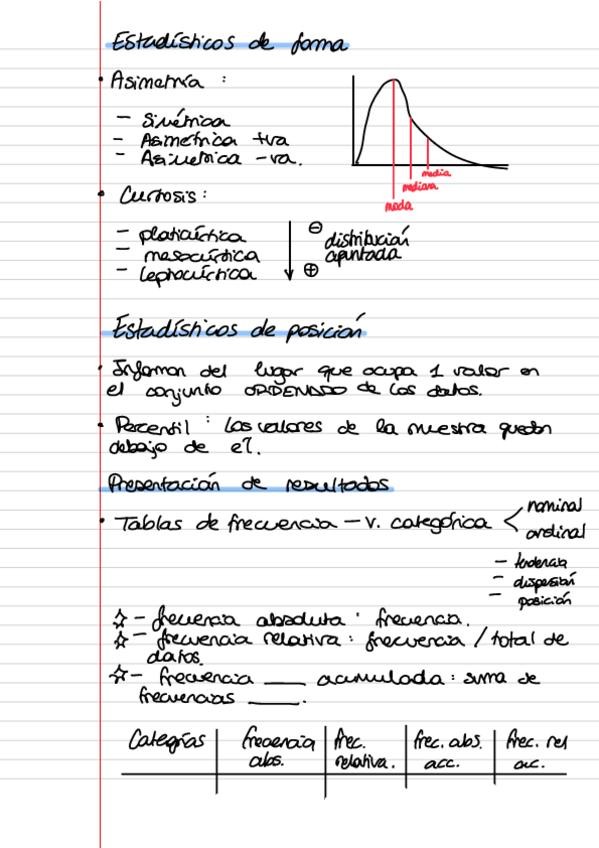 Estadísticos de forma
• Asimetría :
- Simétrica
- Asimétrica +va
- Asimétrica -va.
media
mediana
moda
• Curtosis :
- platicúrtica
- mesocúrtica
- leptocúrtica
⊖ distribución
⊕ apuntada
Estadísticos de posición
• Informan del lugar que ocupa 1 valor en
el conjunto ORDENADO de los datos.
• Percentil : Los valores de la muestra quedan
debajo de él.
Presentación de resultados
• Tablas de frecuencia - v. categórica < nominal
ordinal
- tendencia
- dispersión
- posición
☆ - frecuencia absoluta : frecuencia.
☆ - frecuencia relativa : frecuencia / total de
datos.
☆ - frecuencia ___ acumulada : suma de
frecuencias ___.
Categrías | frecuencia abs. | frec. relativa. | frec. abs. acc. | frec. rel ac.